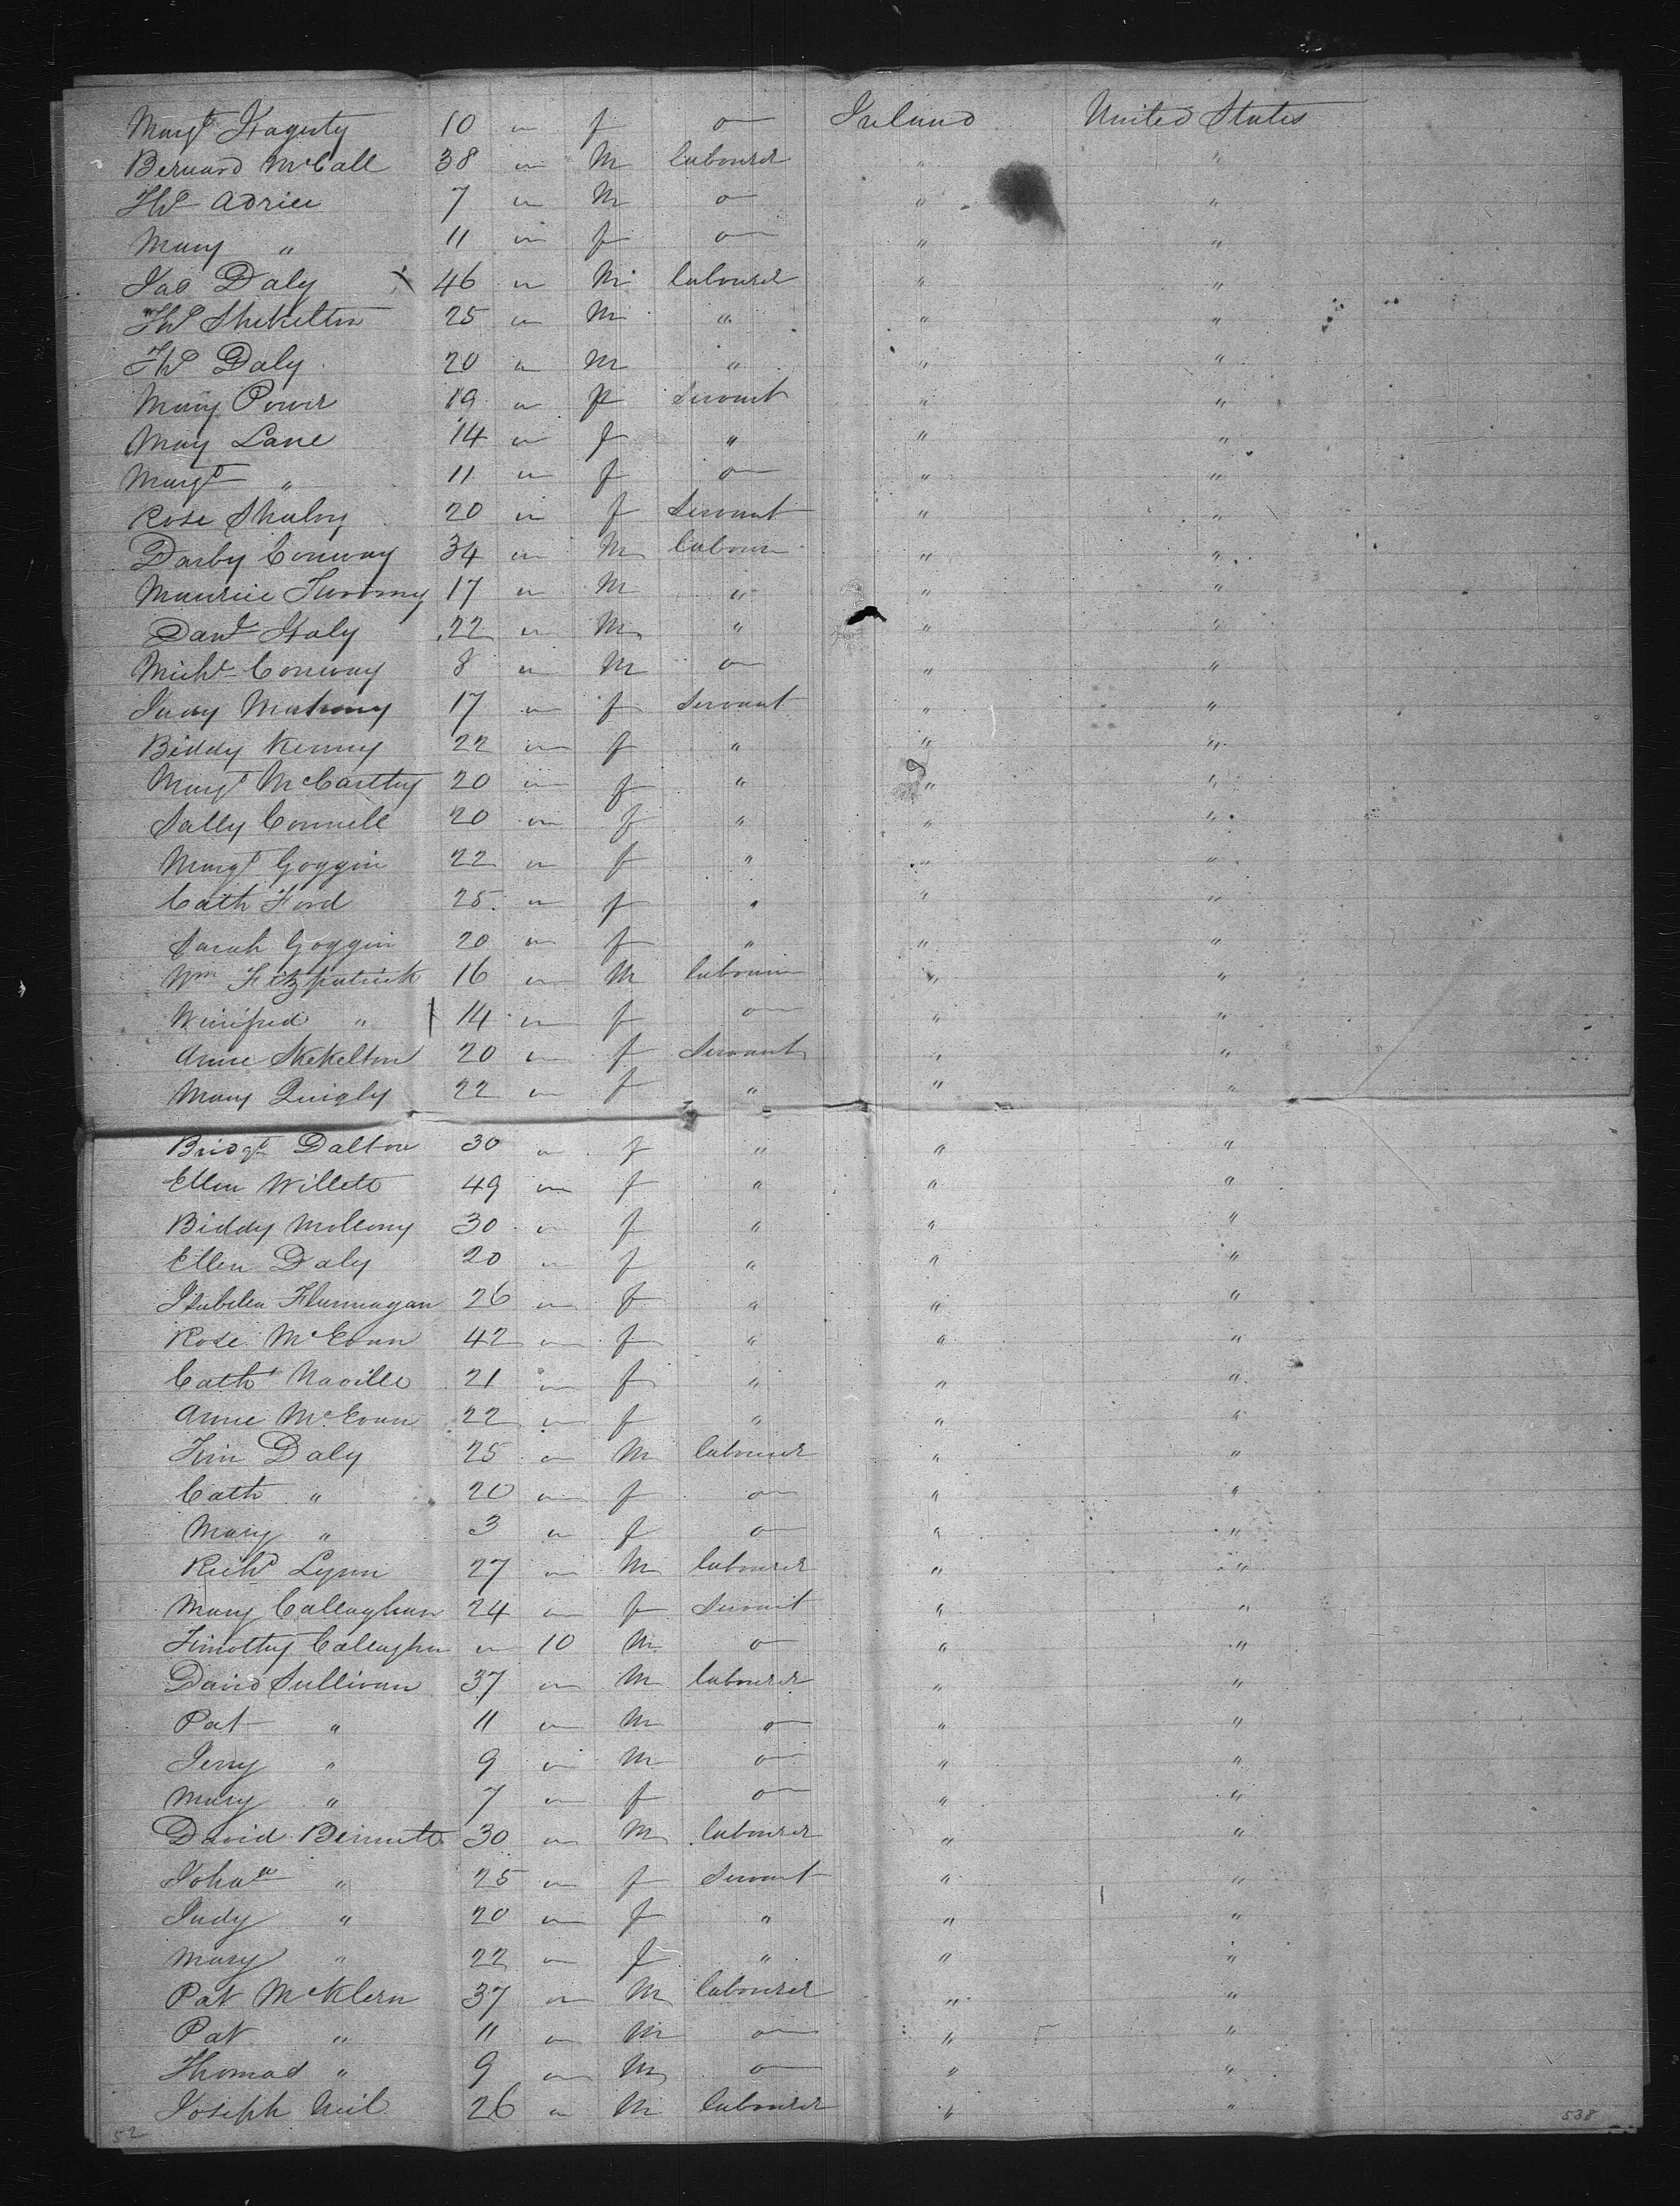 Margt Hagerty 10 " f o Ireland United States
Bernard McCall 38 " M labourer " "
Ths Adrien 7 " M o " "
Mary " 11 " f o " "
Jas Daly 46 " M labourer " "
Ths Shekelton 25 " M " " "
Ths Daly 20 " M " " "
Mary Power 19 " f Servant " "
Mary Lane 14 " f " " "
Margt " 11 " f o " "
Rose 20 " f Servant " "
Darby Conway 34 " M labourer " "
Maurice Twoomy 17 " M " " "
Danl Haly 22 " M " " "
Michl Conway 8 " M o " "
Judy Mahony 17 " f Servant " "
Biddy Kenny 22 " f " " "
Margt McCarthy 20 " f " " "
Sally Connell 20 " f " " "
Margt Goggin 22 " f " " "
Cath Ford 25 " f " " "
Sarah Goggin 20 " f " " "
Wm Fitzpatrick 16 " M labourer " "
Winifred " 14 " f o " "
Anne Skekelton 20 " f Servant " "
Mary Quigly 22 " f " " "
Bridgt Dalton 30 " f " " "
Ellen Willets 49 " f " " "
Biddy Mollony 30 " f " " "
Ellen Daly 20 " f " " "
Isabella Flannagan 26 " f " " "
Rose McEvan 42 " f " " "
Cath Naville 21 " f " " "
Anne McEvan 22 " f " " "
Tim Daly 25 " M labourer " "
Cath " 20 " f o " "
Mary " 3 " f o " "
Richd Lynn 27 " M labourer " "
Mary Callaghan 24 " f Servant " "
Timothy Callaghan " 10 M o " "
David Sullivan 37 " M labourer " "
Pat " 11 " M o " "
Jerry " 9 " M o " "
Mary " 7 " f o " "
David Bennett 30 " M labourer " "
Joha " 25 " f Servant " "
Judy " 20 " f " " "
Mary " 22 " f " " "
Pat McKlern 37 " M labourer " "
Pat " 11 " M o " "
Thomas " 9 " M o " "
Joseph Neil 26 " M labourer " "
52 538